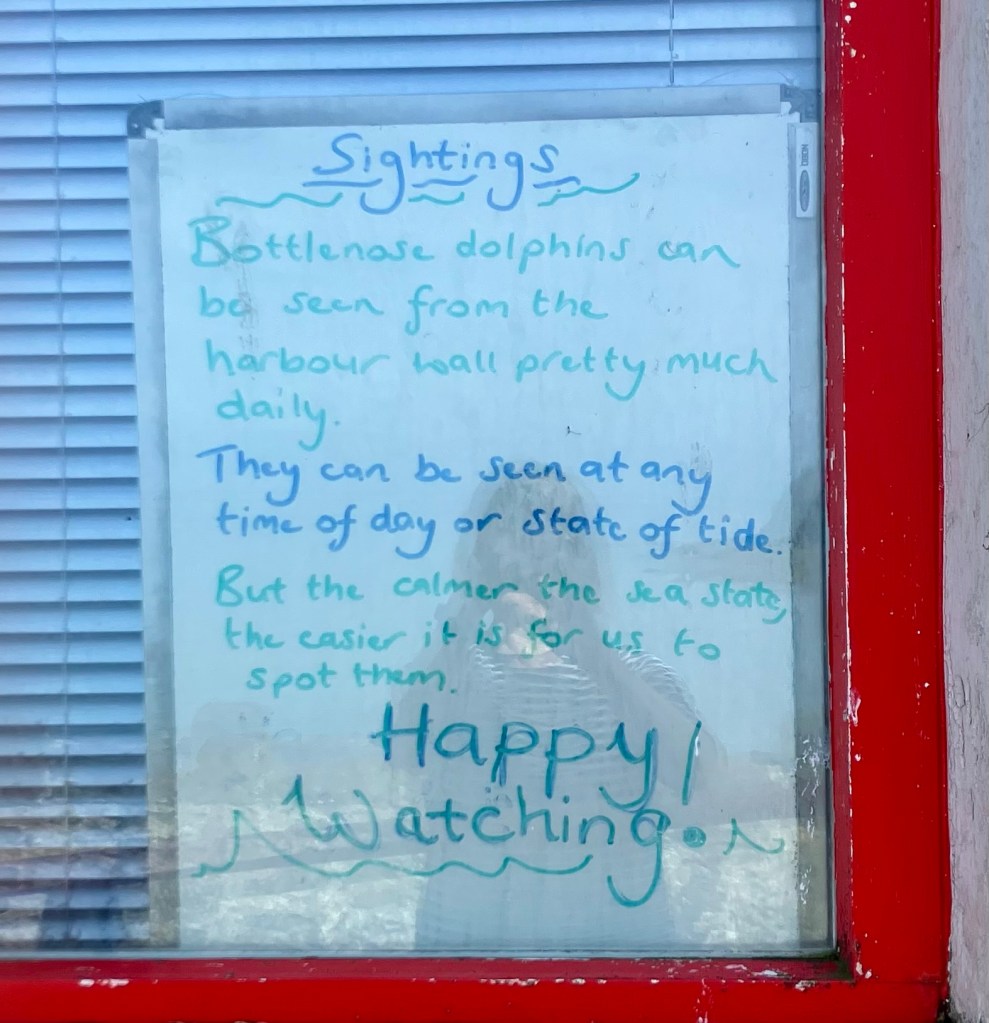 Sightings
Bottlenose dolphins can
be seen from the
harbour wall pretty much
daily.
They can be seen at any
time of day or state of tide.
But the calmer the sea state,
the easier it is for us to
spot them.
Happy
Watching!